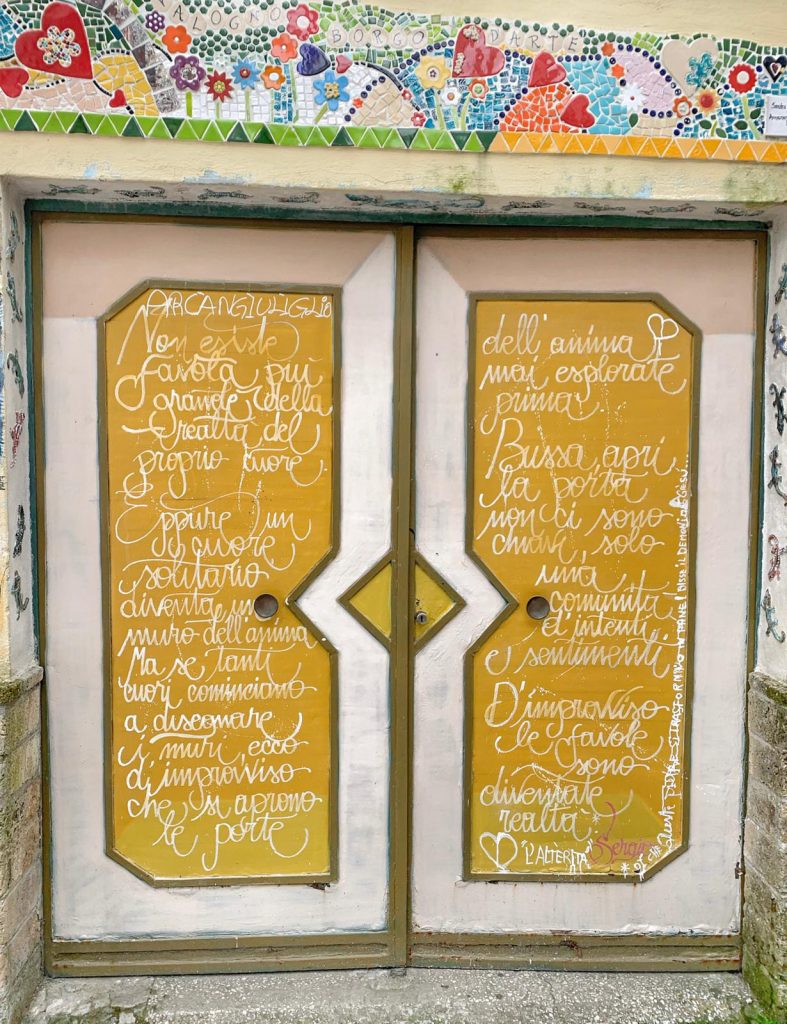 ALOGNO BORGO D'ARTE
ARCANGIULIGLIO
Non esiste
favola più
grande della
realtà del
proprio cuore.
Eppure un
cuore
solitario
diventa un
muro dell'anima
Ma se tanti
cuori cominciano
a disegnare
i muri, ecco
d'improvviso
che si aprono
le porte
dell'anima
mai esplorate
prima.
Bussa, apri
la porta
non ci sono
chiavi solo
una
comunità
d'intenti
e sentimenti
D'improvviso
le favole
sono
diventate
realtà
"L'ALTÈRITÀ"
PIETRE SI TRASFORMINO IN PANE! DISSE IL DEMONIO A GESÙ...